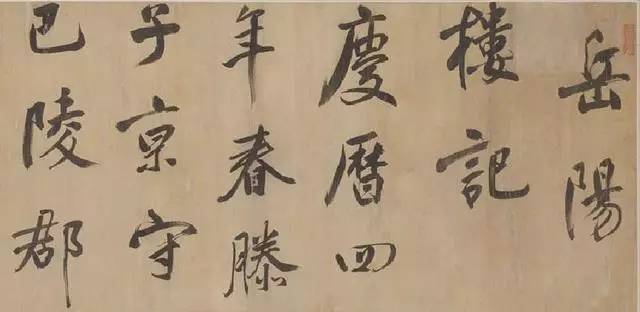 岳陽
樓記
慶曆四
年春滕
子京守
巴陵郡